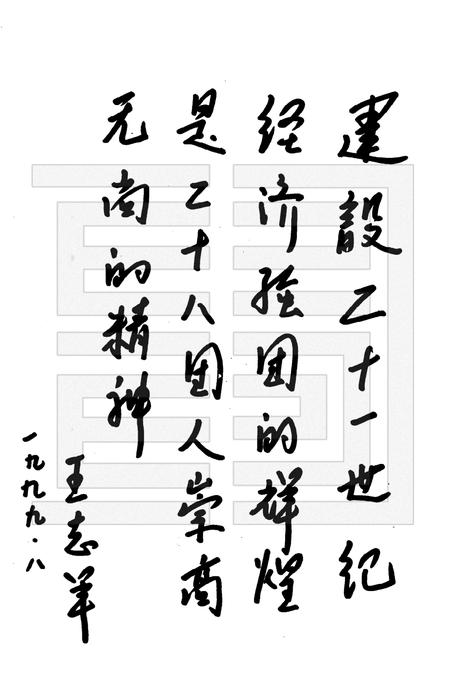 建設二十一世纪
经济强团的辉煌
是二十八团人崇高
无尚的精神
王志羊
一九九九·八